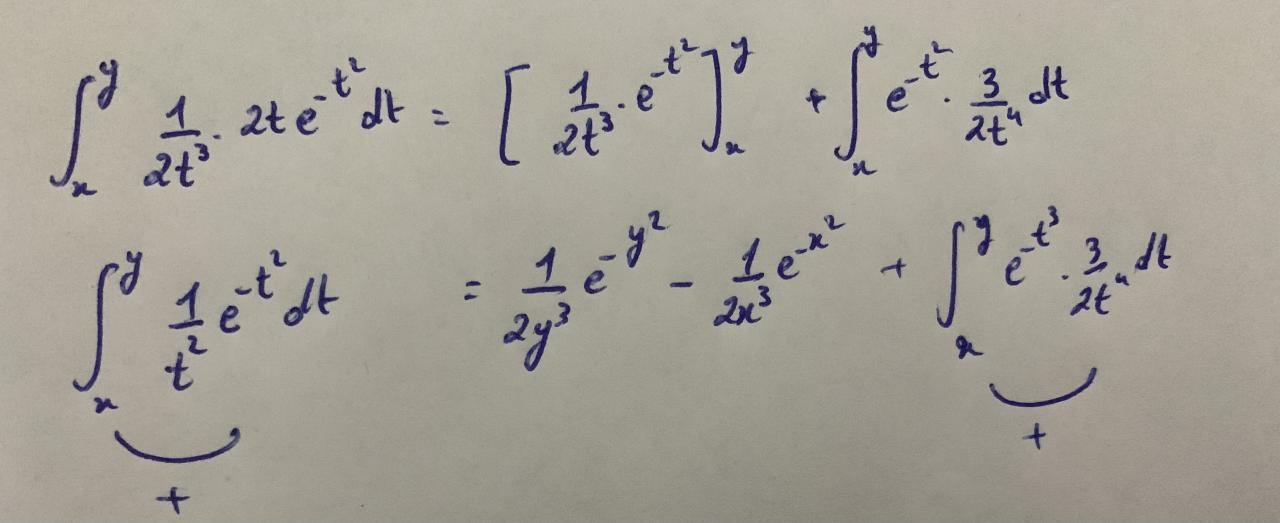 ∫_x^y 1/(2t³) · 2t e^(-t²) dt = [ 1/(2t³) · e^(-t²) ]_x^y + ∫_x^y e^(-t²) · 3/(2t⁴) dt
∫_x^y 1/t² e^(-t²) dt = 1/(2y³) e^(-y²) - 1/(2x³) e^(-x²) + ∫_x^y e^(-t³) · 3/(2t⁴) dt
+ +